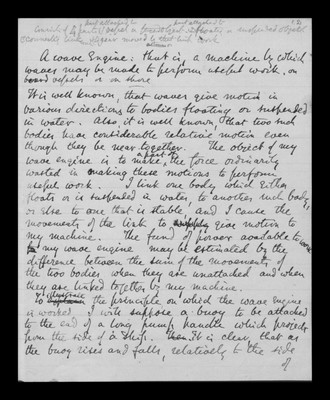 A wave Engine: that is, a machine by which
waves may be made to perform useful work, on
board vessels or on shore
It is well known, that waves give motion in
various directions to bodies floating or suspended
in water. Also, it is well known that two such
bodies have considerable relative motion even
though they be near together. The object of my
wave engine is to make, a part of the force ordinarily
wasted in making these motions to perform
useful work. I link one body which either
floats or is suspended in water, to another such body,
or else to one that is stable, and I cause the
movements of the link, to give motion to
my machine. The fund of power available to work
my wave engine may be estimated by the
difference between the sum of the movements of
the two bodies when they are unattached and when
they are linked together by my machine.
To illustrate the principle on which the wave engine
is worked I will suppose a buoy to be attached
to the end of a long pump handle which projects
from the side of a ship. It is clear, that as
the buoy rises and falls, relatively to the side
of